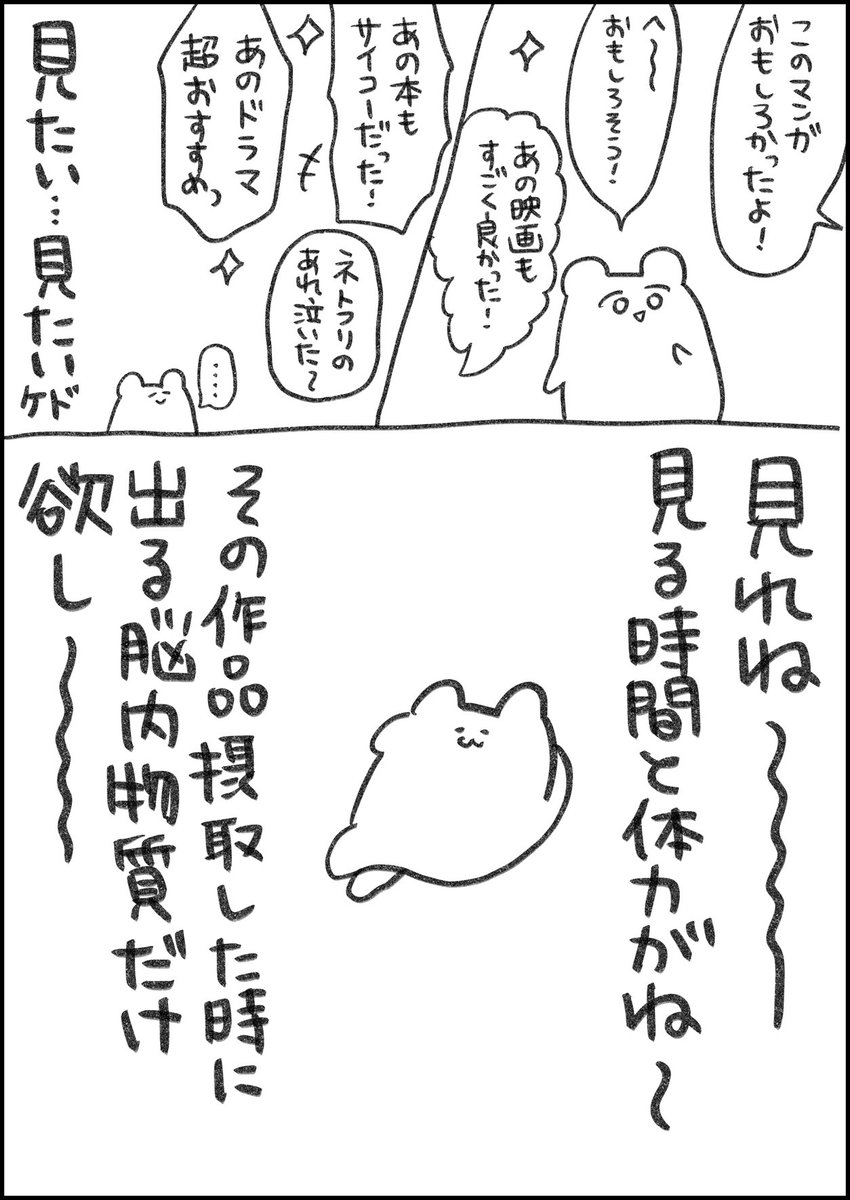 このマンガ
おもしろかったよ!
へ〜〜
おもしろそう!
あの映画も
すごく良かった!
あの本も
サイコーだった!
あのドラマ
超おすすめっ
ネトフリの
あれ、泣いた〜
‥‥
見たい…見たいケド
見れね〜〜〜
見る時間と体力がね〜
その作品摂取した時に
出る脳内物質だけ
欲し〜〜〜